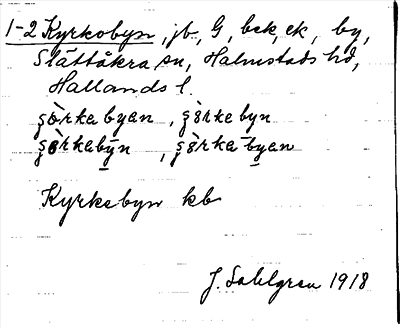 1-2 Kyrkobyn, jb, G, bek, ek, by,
Slättåkra sn, Halmstads hd,
Hallands l.
şòrkabyan, şòrkebyn
şòrkabȳn, şòrka-byan
Kyrkebyn kb
J. Sahlgren 1918